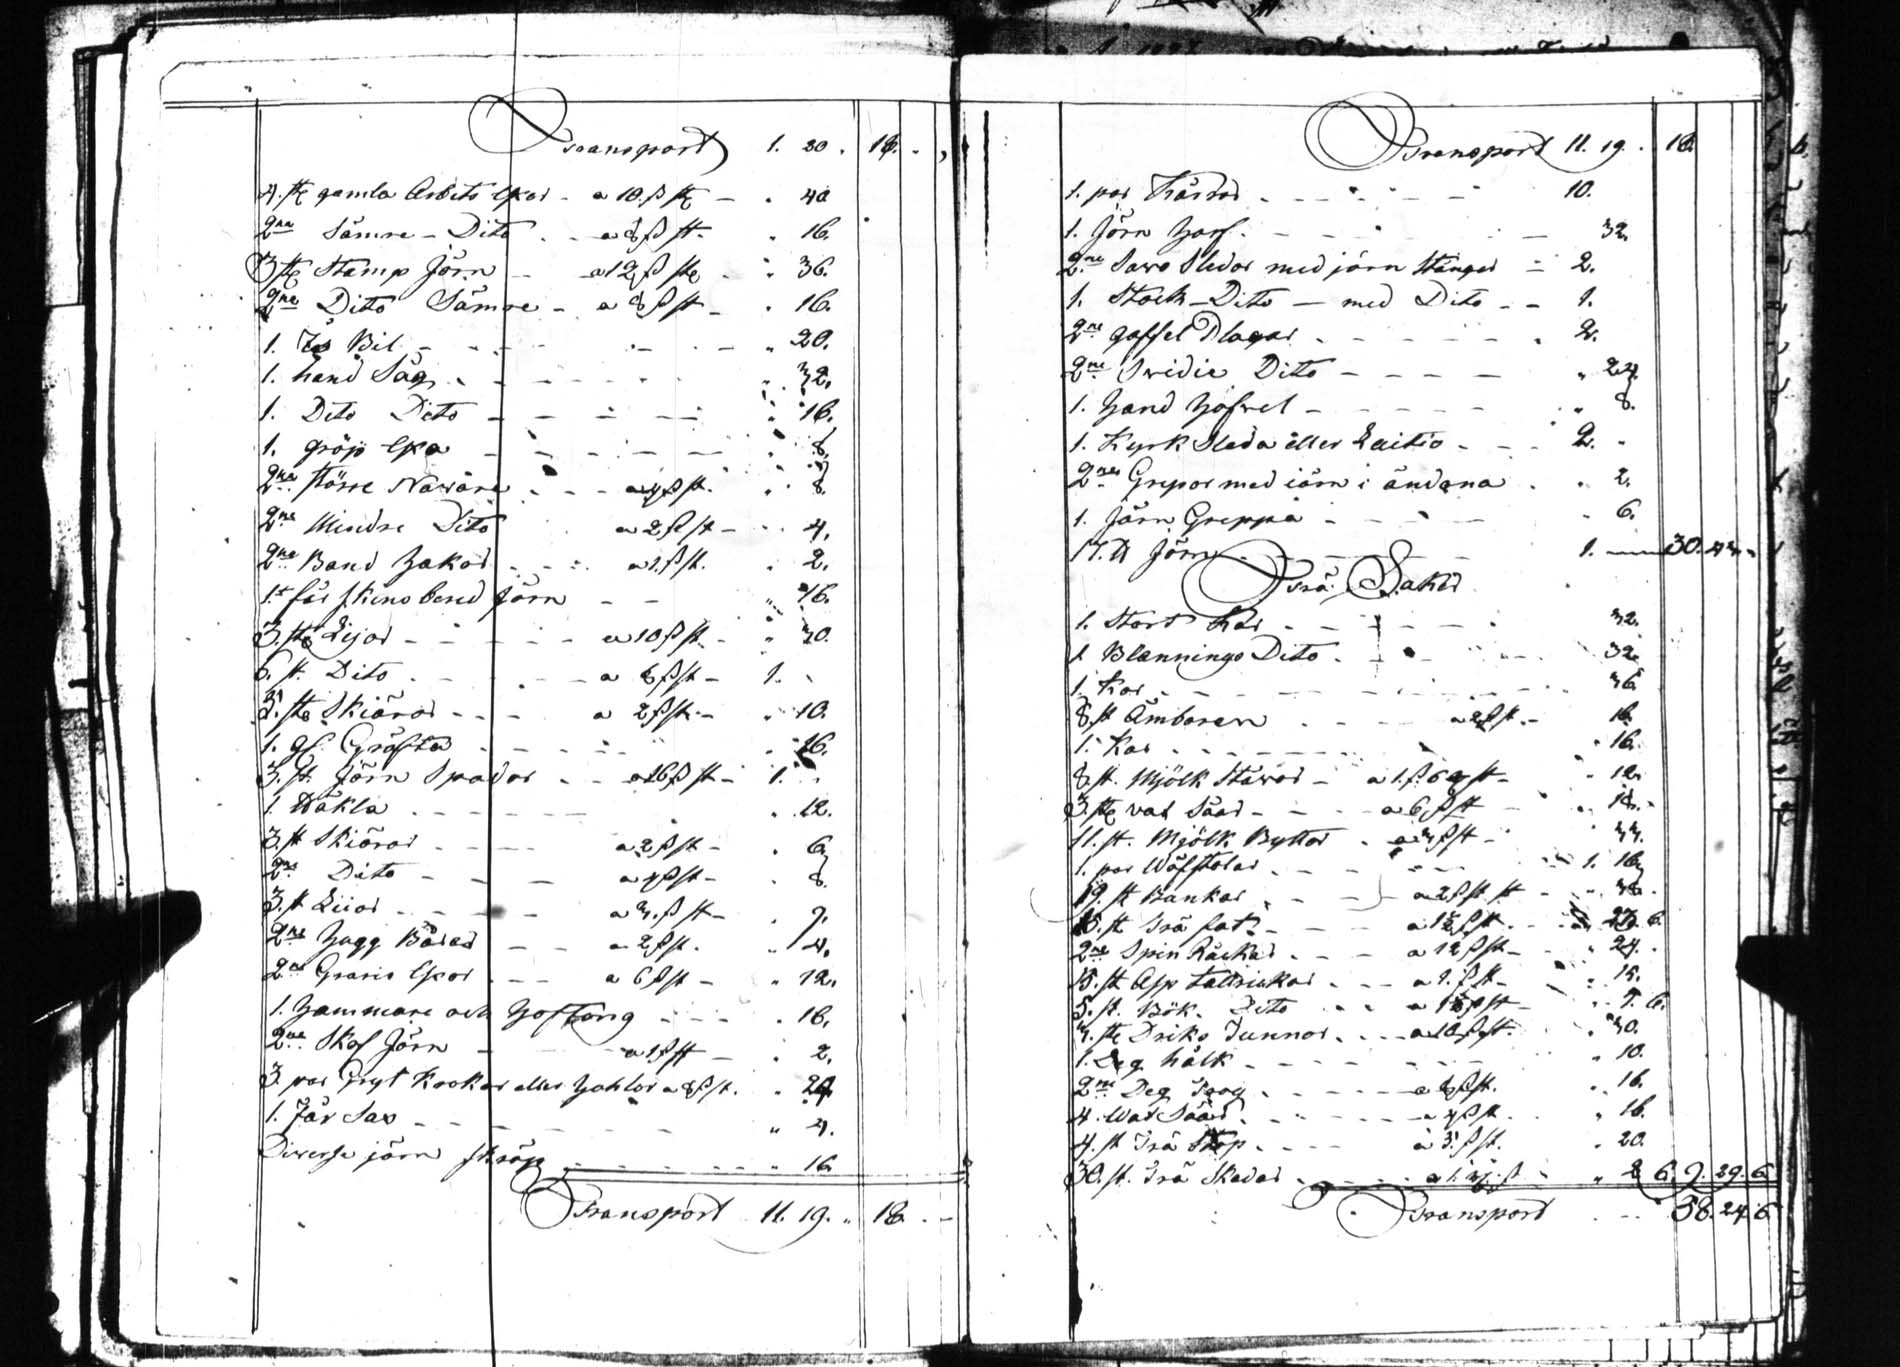 Transport 1. 20. 18.
4. st gamla Arbets Yxor - a 10 ß st - 40
2ne Sämre - Dito - a 8 ß st - 16.
3 st Stamp Jörn - a 12 ß st - 36.
2ne Dito Sämre - a 8 ß st - 16.
1. Is Bil - 20.
1. hand Såg - 32.
1. Dito Dito - 16.
1. gröp Yxa - 8.
2ne Större Naware - a 4 ß st. 8.
2ne Mindre Dito a 2 ß st - 4.
2ne Band Hakar - a 1 ß st. 2.
1. st Jörn - 16.
3. st Lijor - a 10 ß st - 30.
6. st Dito - a 8 ß st - 1.
5. st Skiäror - a 2 ß st - 10.
1. 16.
3. st. Jörn Spador - a 16 ß st - 1.
1. Häkla - 12.
3. st Skiäror - a 2 ß st - 6.
2ne Dito - a 4 ß st - 8.
3. st Liior - a 3. ß st - 9.
2ne Hugg - a 2 ß st. 4.
2ne Yxor - a 6 ß st - 12.
1. Hammare och Hoftong - 16.
2ne Skof Jörn - a 1 ß st - 2.
3. par Gryt Krokar eller Hahlor a 8 ß st. 24.
1. Får Sax - 4.
Diverse jörn skräp - 16.
Transport 11. 19. 18.
Transport 11. 19. 18.
1. par Kärror - 10.
1. Jörn Harf - 32.
2ne Sledar med jörn Stänger - 2.
1. Stock - Dito - med Dito - 1.
2ne gaffel Plogar - 2.
2ne Dito - 24.
1. Hand Hofvel - 8.
1. Kyrk Sleda eller Laitio - 2.
2ne Grepor med iärn i ändarna - 2.
1. Järn Greppa - 6.
17. Jörn - 1. 30. 43.
Trä Saker
1. Stort Kar - 32.
1 Blannings Dito - 32.
1. Kar - 36.
8. st Ämbaren - a 2 ß st - 16.
1. Kar - 16.
8. st. Mjölk Stäwor - a 1. ß 6 st - 12.
3. st Såar - a 6 ß st - 18.
11. st. Mjölk Byttor - a 3 ß st - 33.
1. par Wäfstolar - 1. 16.
19. st Bänkar - a 2 ß st - 38.
15. st Trä fat - a 1½ ß st - 22. 6.
2ne Spin Råckar - a 12 ß st - 24.
15. st Asp tallrickar - a 1. ß st - 15.
5. st. Bök. Dito - a 1½ ß st - 7. 6.
3. st Driks Tunnor - a 10 ß st. 30.
1. Deg hålk - 10.
2ne Deg Trog - a 8 ß st. 16.
4. Såar - a 4 ß st. 16.
4. st Trä Stop - a 5. ß st. 20.
30. st. Trä Skedar - 6. 7. 29. 6
Transport - 58. 24. 6